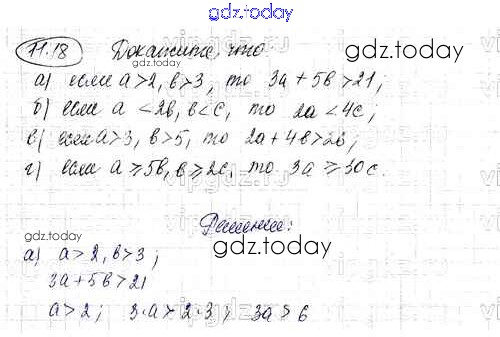 gdz.today
11.18 Докажите, что:
gdz.today
а) если a>2, b>3, то 3a+5b>21;
б) если a<2b, b<c, то 2a<4c;
в) если a>3, b>5, то 2a+4b>26;
г) если a≥5b, b≥2c, то 3a≥30c.
gdz.today
Решение:
gdz.today
а) a>2, b>3;
3a+5b>21
a>2; 3·a>2·3; 3a>6